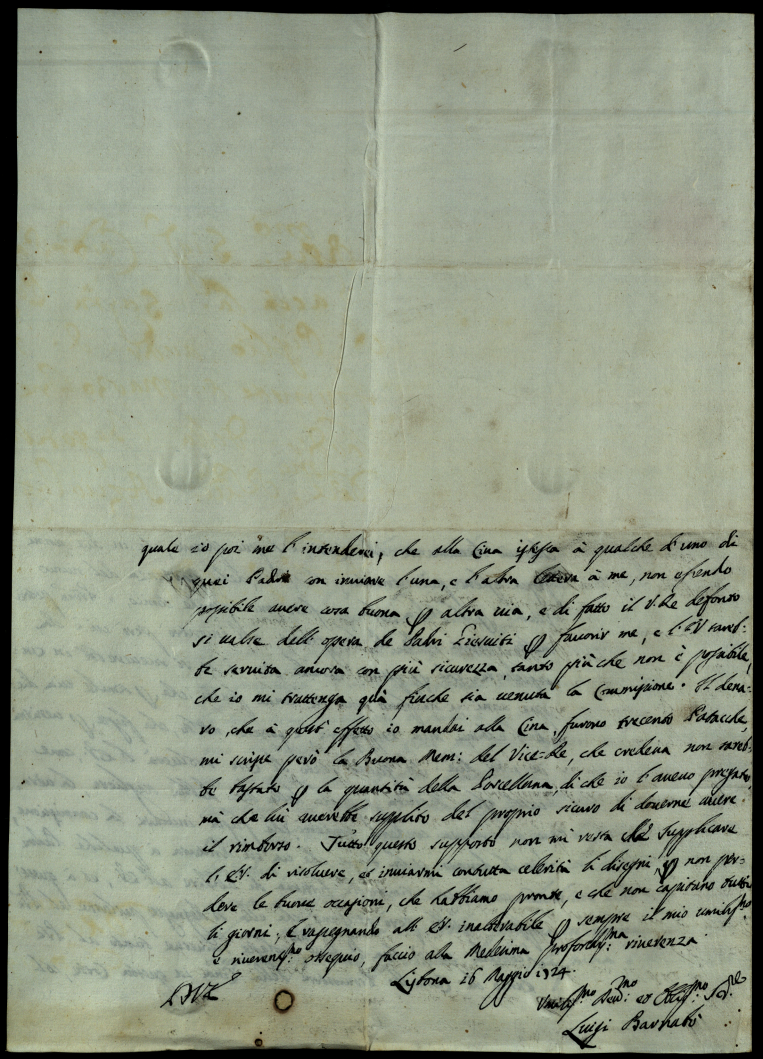 quale io poi me l'intenderei, che alla Cina istessa à qualche d'uno di
quei Padri con inviare l'una, e l'altra lettera à me, non essendo
possibile avere cosa buona p altra via, e di fatto il V. Re defonto
si valse dell'opera de Padri Giesuiti p favorir me, e l'EV sareb-
be servita ancora con più sicurezza, tanto più che non è possibile,
che io mi trattenga quà finche sia venuta la Commissione. Il dena-
ro, che à quest'effetto io mandai alla Cina, furono trecento Patacche,
mi scrisse però la Buona Mem: del Vice-Re, che credeva non sareb-
be bastato p la quantità della Porcellana, di che io l'avevo pregato,
mà che lui averebbe supplito del proprio sicuro di doverne avere
il rimborso. Tutto questo supposto non mi resta che supplicare
l'EV. di risolvere, et inviarmi con tutta celerità li disegni, p non per-
dere le buone occasioni, che habbiamo pronte, e che non capitano tutti
li giorni, E rassegnando all'EV. inalterabile p sempre il mio umiliss.mo
e riverent.mo ossequio, faccio alla Medesima profondiss.ma riverenza
Lisbona 16 Maggio 1724.
Umiliss.mo Dev.mo et Obblig.mo Ser.re
Luigi Barnabò